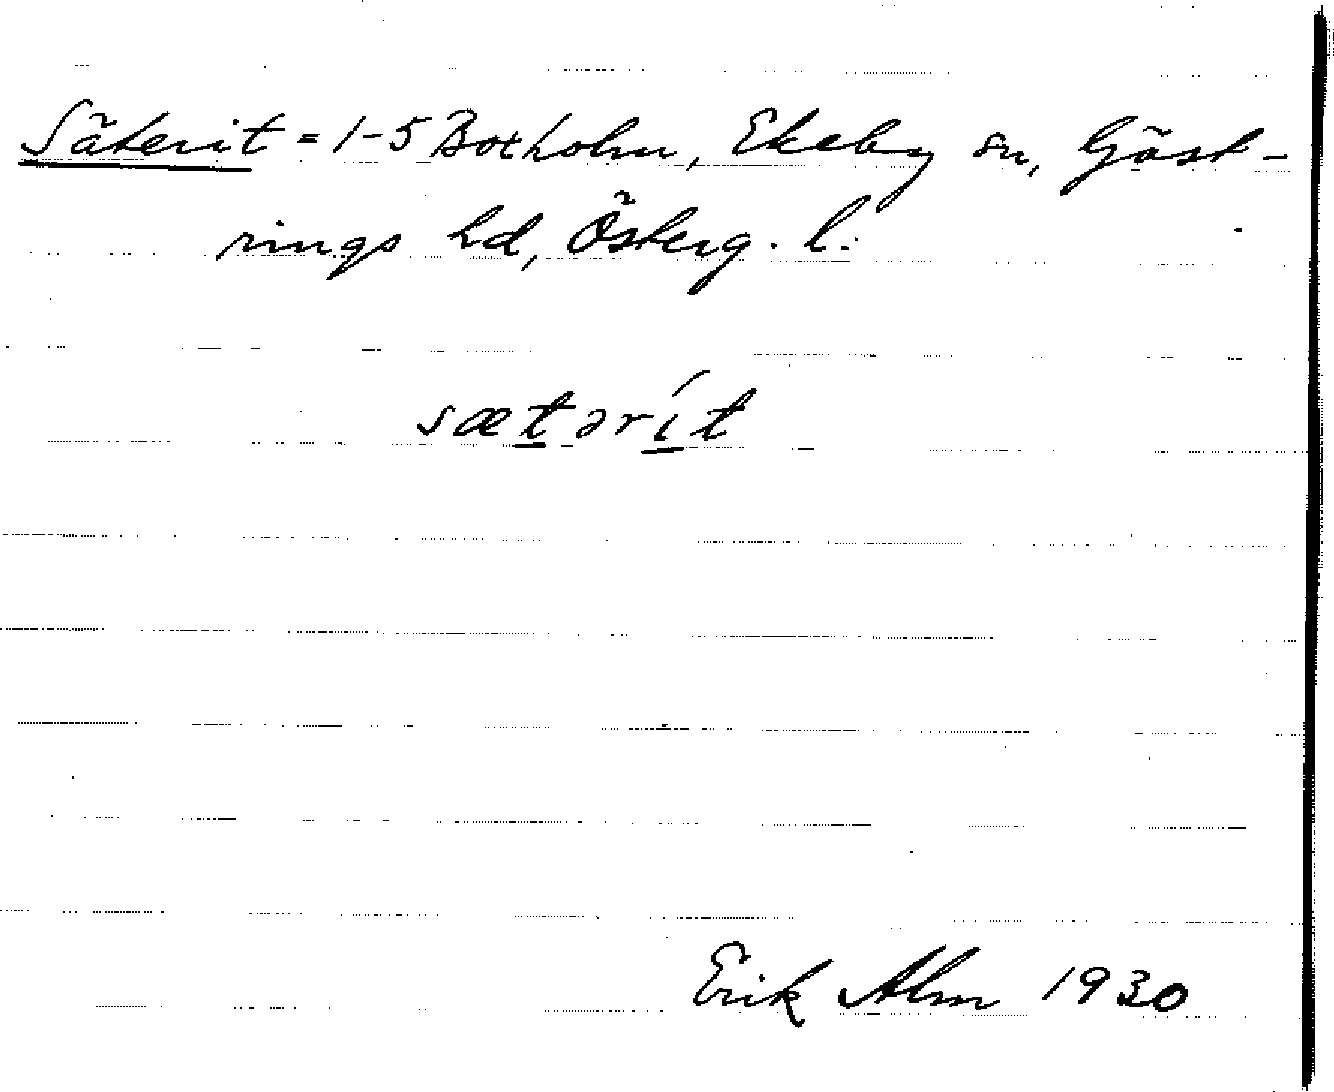 Säterit = 1-5 Boxholm, Ekeby sn, Göst-
rings hd, Österg. l.
sætərít
Erik Alm 1930